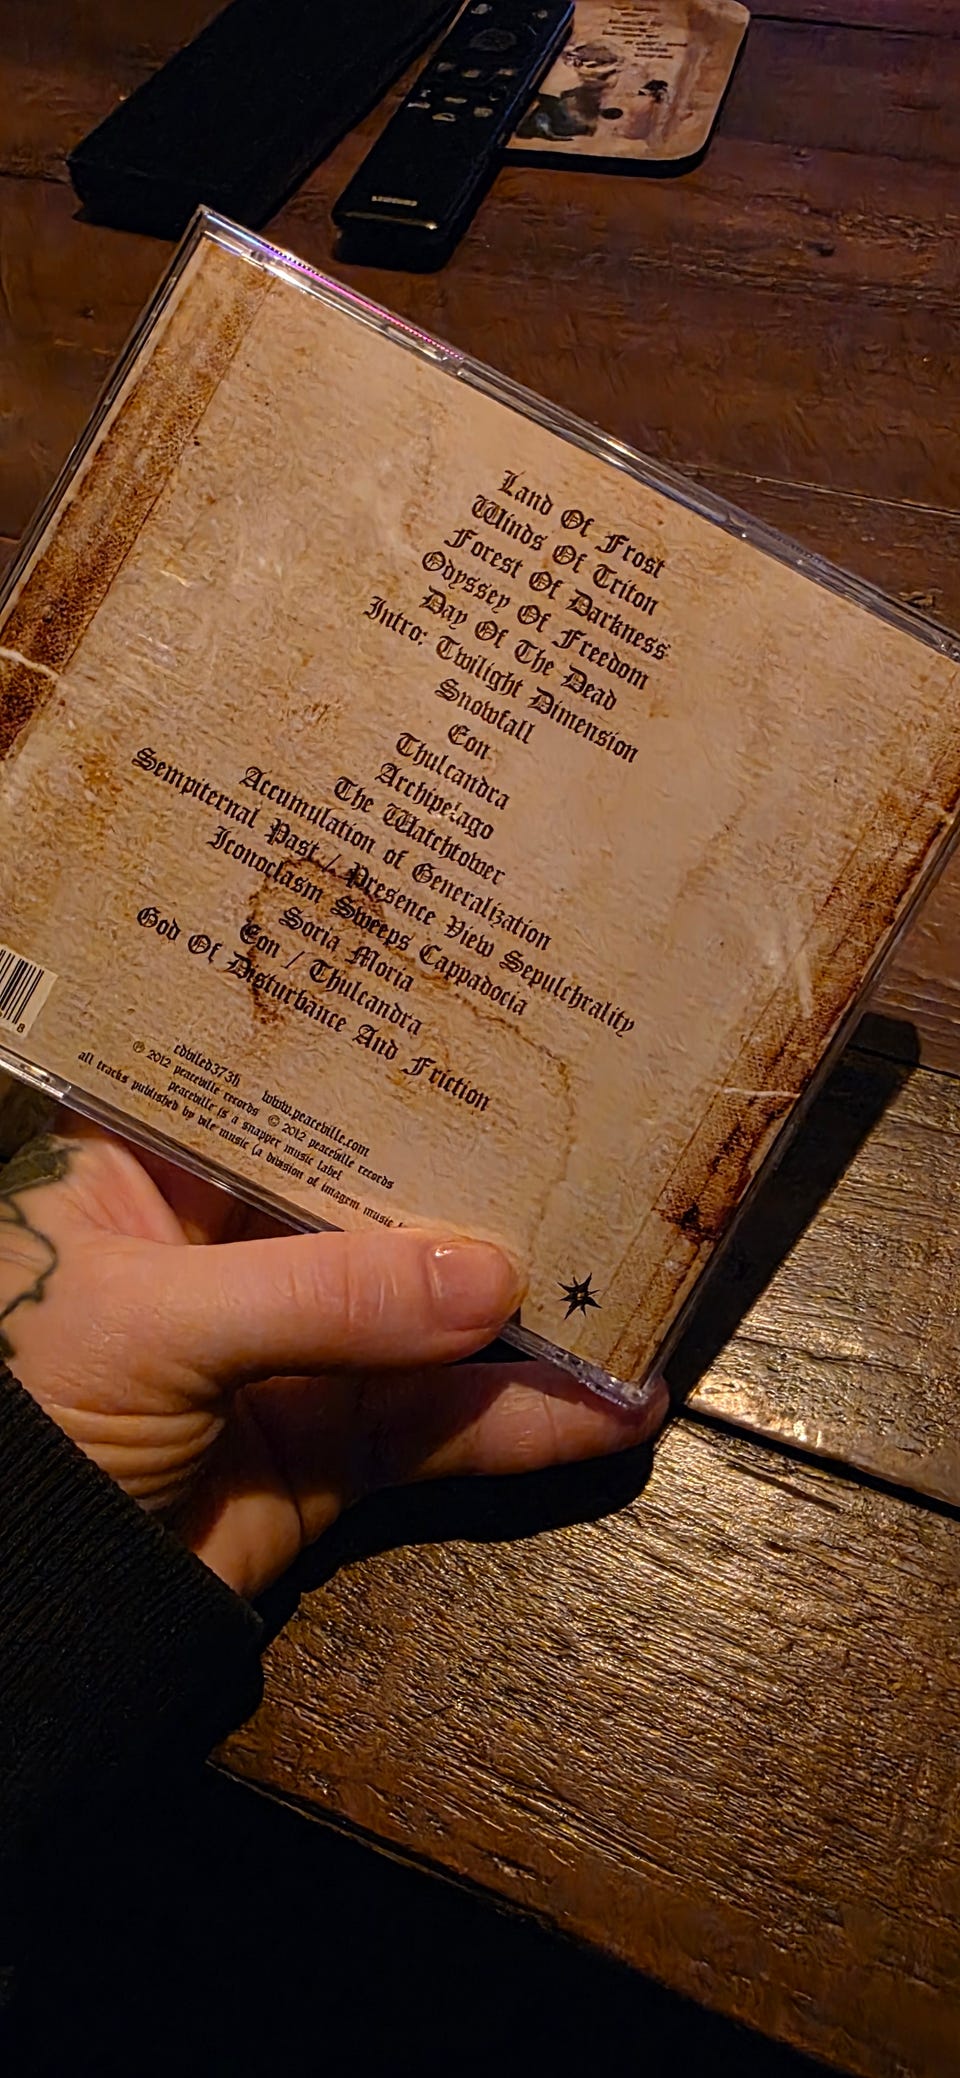 SAMSUNG
Land Of Frost
Winds Of Triton
Forest Of Darkness
Odyssey Of Freedom
Day Of The Dead
Intro: Twilight Dimension
Snowfall
Eon
Thulcandra
Archipelago
The Watchtower
Accumulation of Generalization
Sempiternal Past / Presence View Sepulchrality
Iconoclasm Sweeps Cappadocia
Soria Moria
Eon / Thulcandra
God Of Disturbance And Friction
8
cdviled373h www.peaceville.com
℗ 2012 peaceville records © 2012 peaceville records
peaceville is a snapper music label
all tracks published by vile music (a division of imagem music